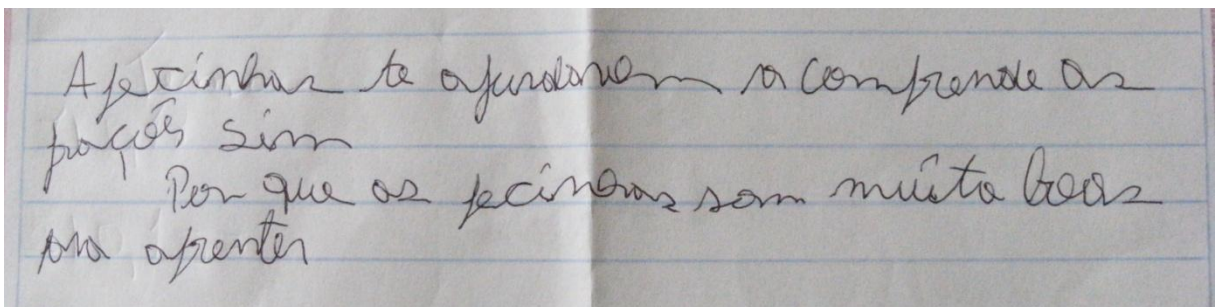 A pecinhas te ajudaram a comprende as
frações sim
Por que as pecinhas som muita boas
pra aprenter